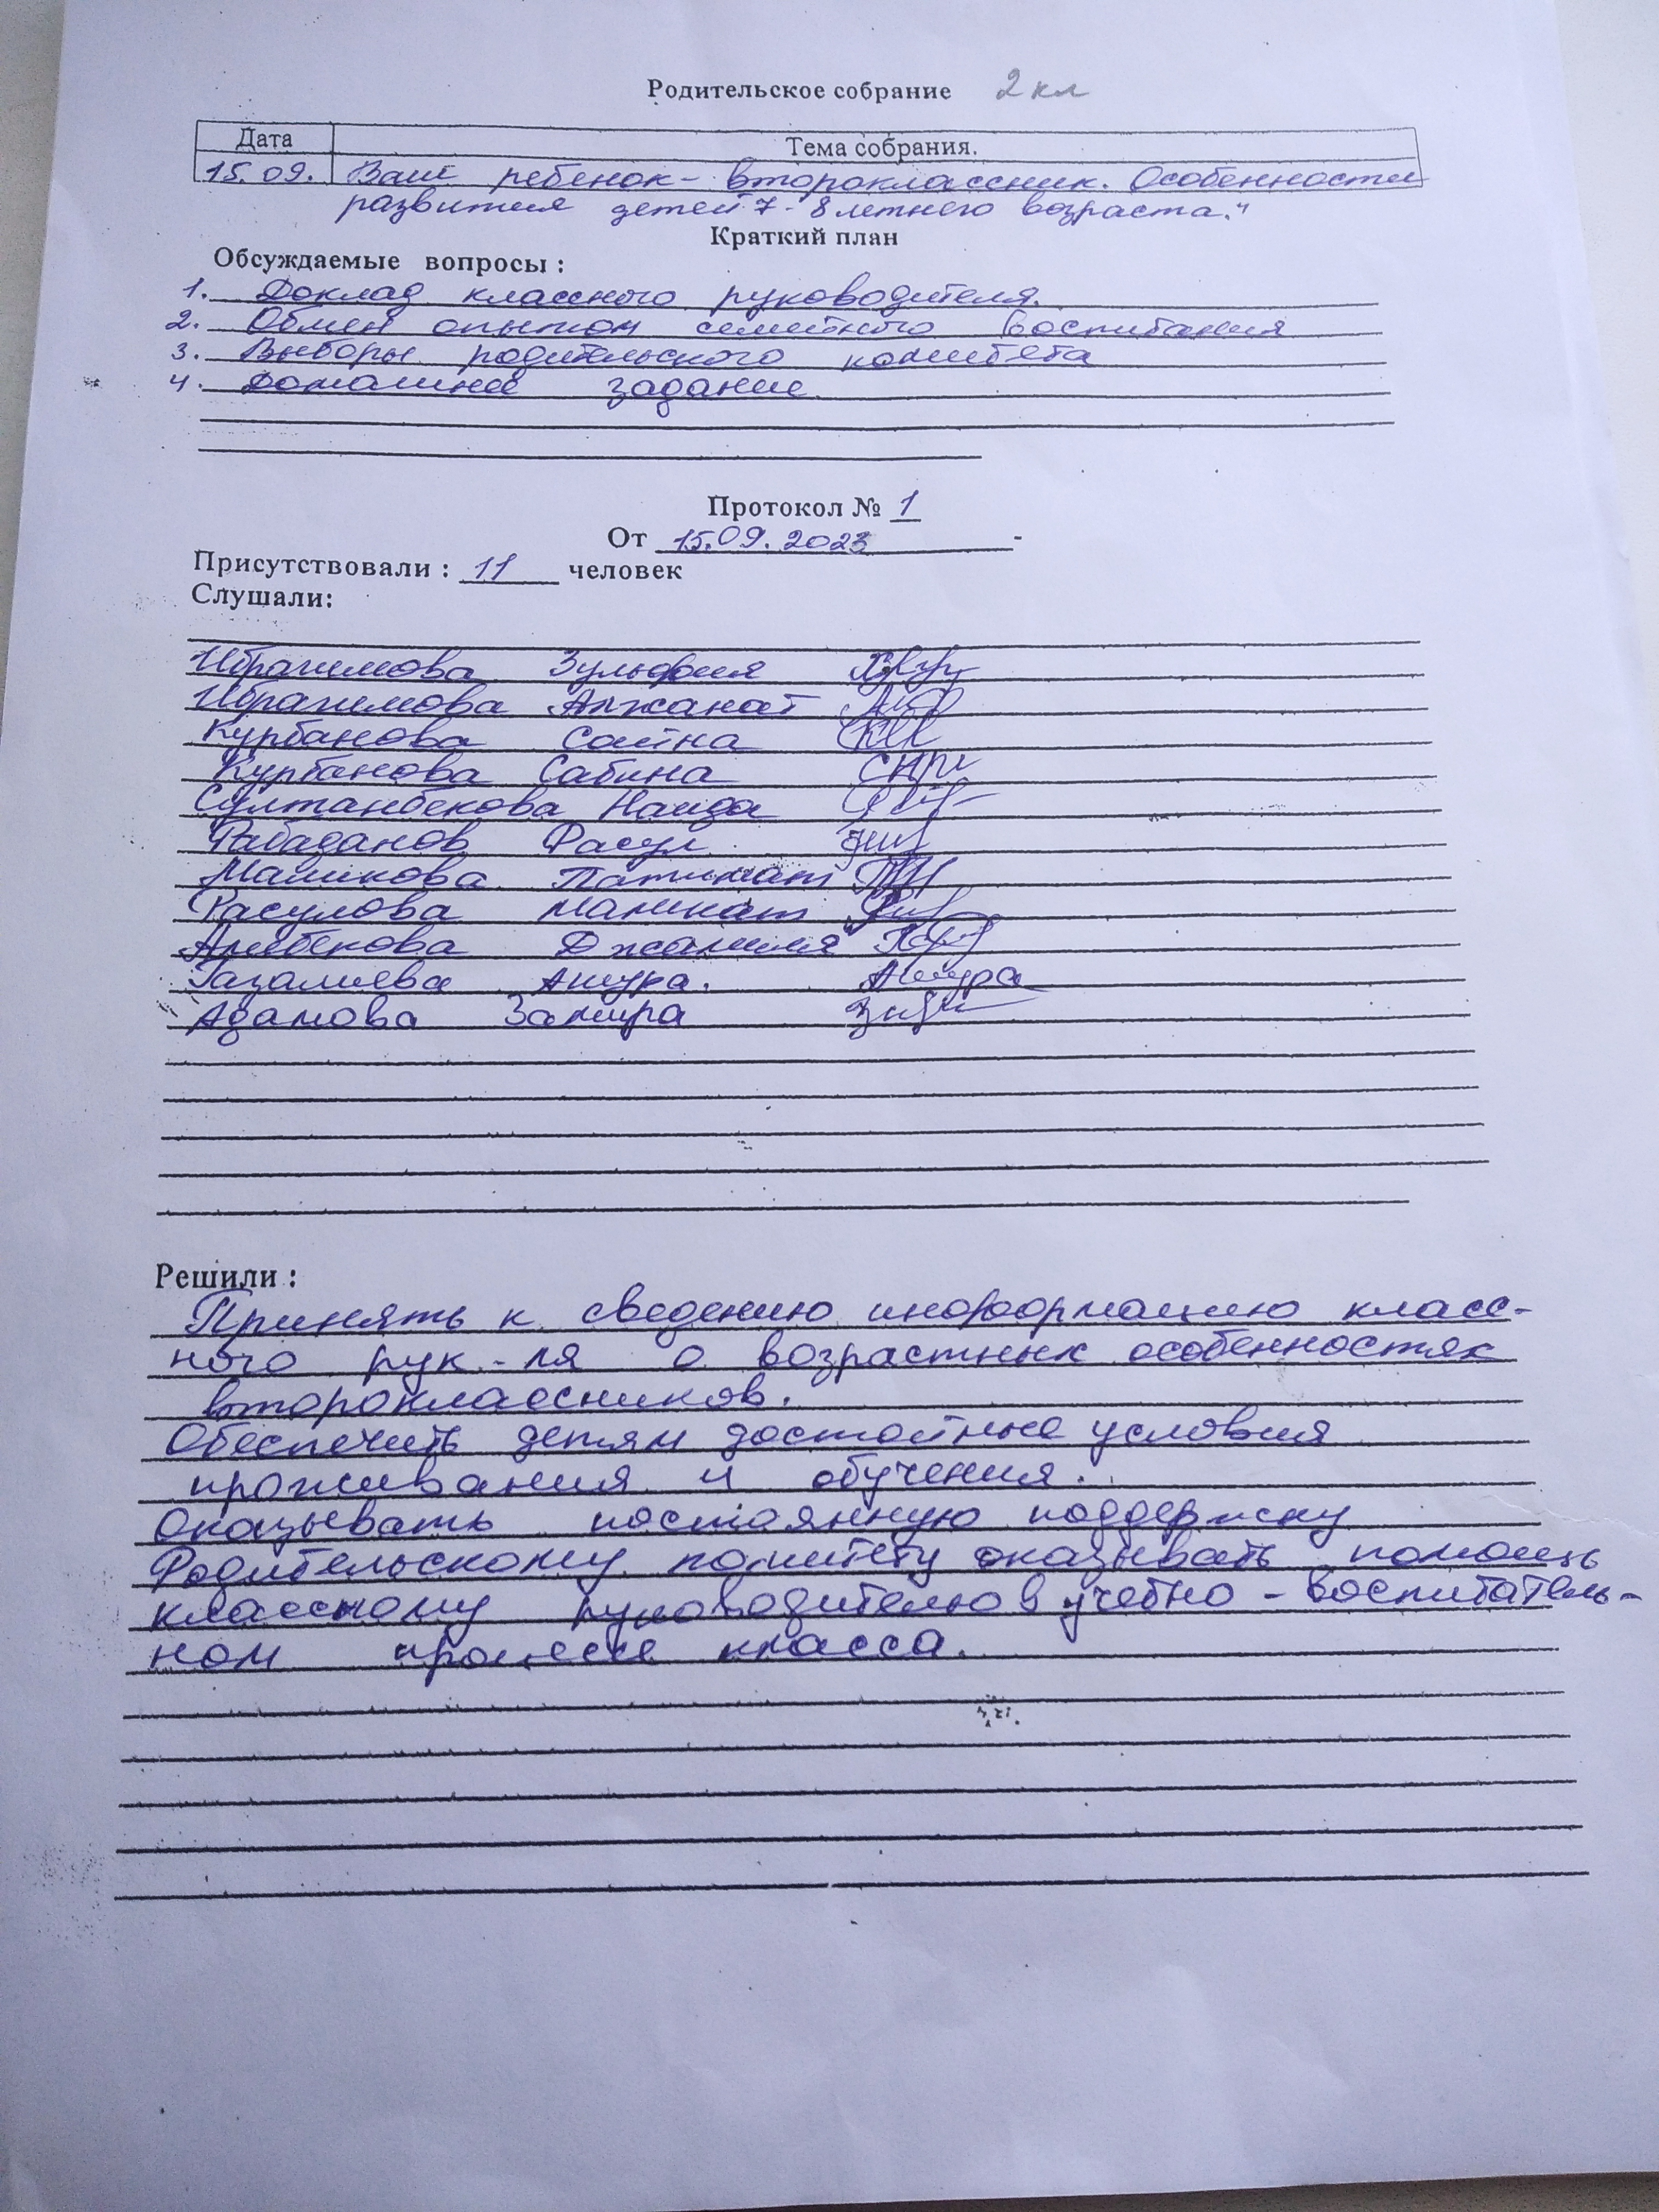 Родительское собрание 2 кл
Дата Тема собрания.
15.09. Ваш ребенок - второклассник. Особенности
развития детей 7-8 летнего возраста."
Краткий план
Обсуждаемые вопросы :
1. Доклад классного руководителя.
2. Обмен опытом семейного воспитания
3. Выборы родительского комитета
4. Домашнее задание
Протокол № 1
От 15.09.2023
Присутствовали : 11 человек
Слушали:
Ибрагимова Зульфия
Ибрагимова Алжанат
Курбанова
Курбанова Сабина
Султанбекова Наида
Рабаданов Расул
Маликова Патимат
Расулова Маликат
Алибекова Джамиля
Газалиева Ашура. Ашура
Адамова Замира
Решили :
Принять к сведению информацию класс-
ного рук-ля о возрастных особенностях
второклассников.
Обеспечить детям достойные условия
проживания и обучения.
Оказывать постоянную поддержку
Родительскому комитету оказывать помощь
классному руководителю в учебно-воспитатель-
ном процессе класса.